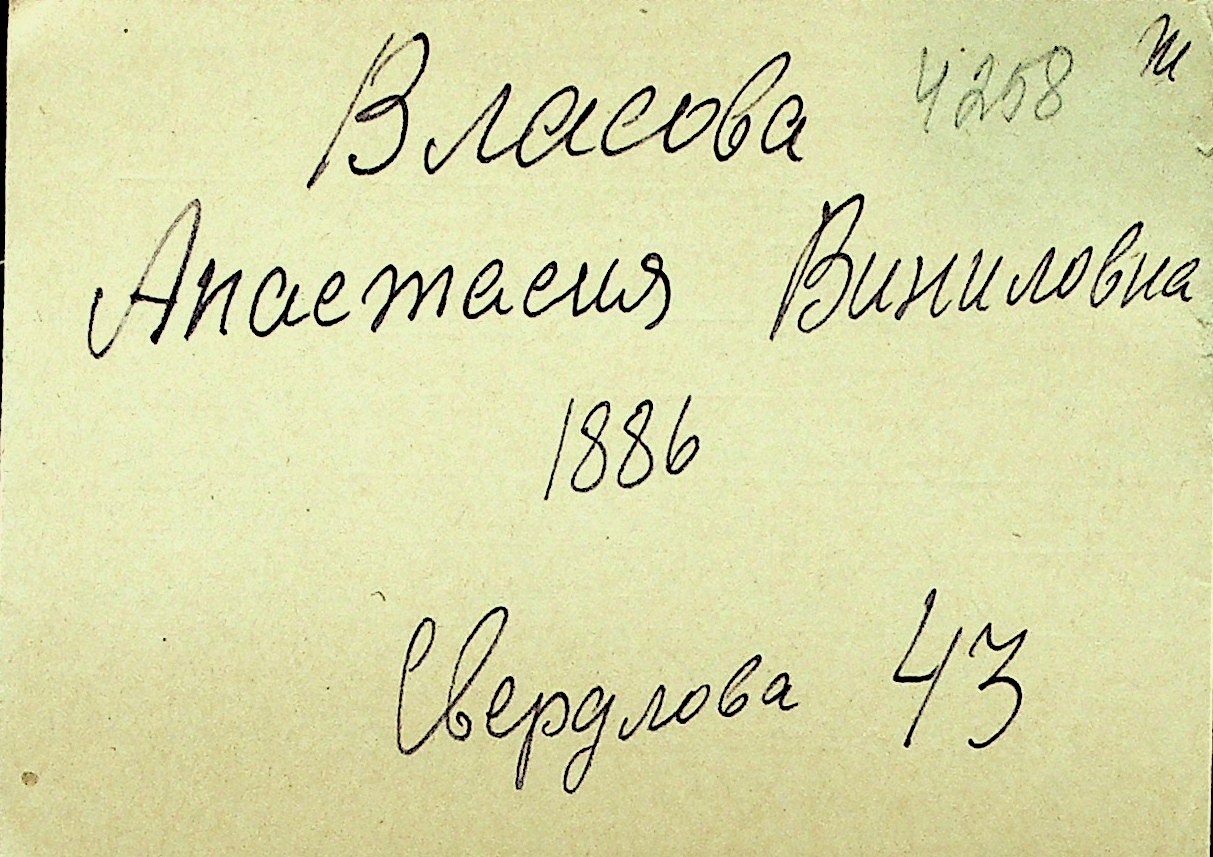 Власова 4258 ж
Анастасия Виниловна
1886
Свердлова 43